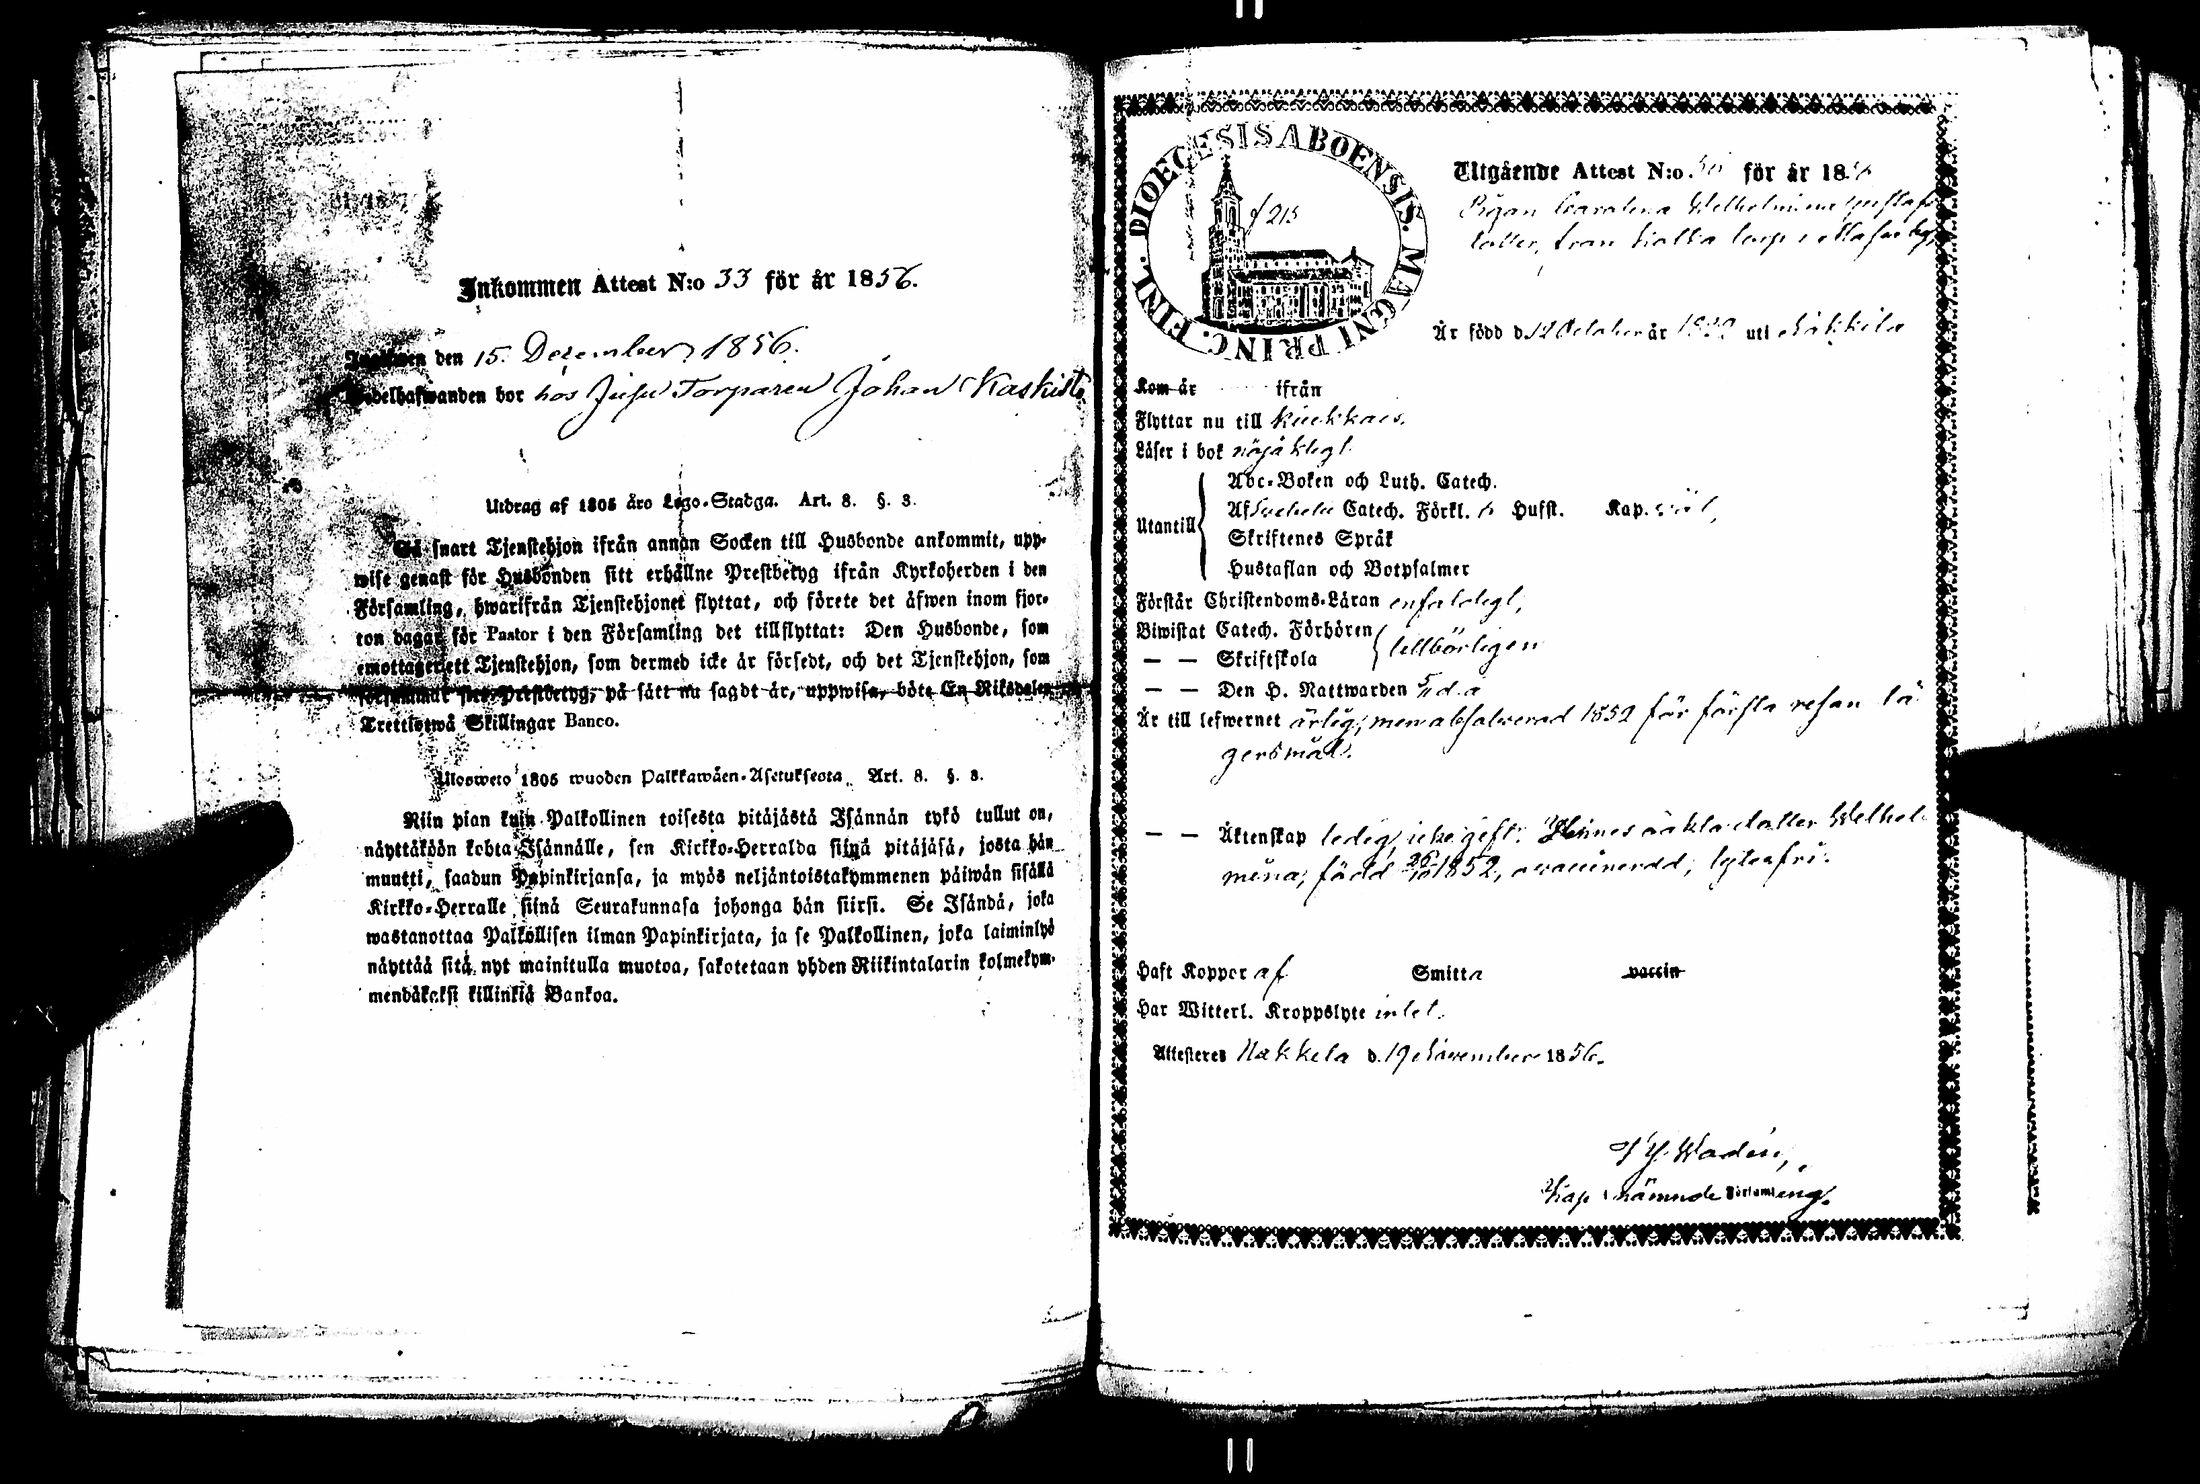 Inkommen Attest N:o 33 för år 1856.
den 15. Dezember 1856.
bor hos Torparen Johan Kaskisto
Utdrag af 1805 åro Lego-Stadga. Art. 8. §. 3.
Så snart Tjenstehjon ifrån annan Socken till Husbonde ankommit, upp-
wise genast för Husbonden sitt erhållne Prestbetyg ifrån Kyrkoherden i den
Församling, hwarifrån Tjenstehjonet flyttat, och förete det äfwen inom fjor-
ton dagar för Pastor i den Församling det tillflyttat: Den Husbonde, som
emottager ett Tjenstehjon, som dermed icke är försedt, och det Tjenstehjon, som
försummar sitt Prestbetyg, på sätt nu sagdt är, uppwisa, böte En Riksdaler
Trettiotwå Skillingar Banco.
Ulosweto 1805 wuoden Palkkawäen-Asetuksesta, Art. 8. §. 3.
Niin pian kuin Palkollinen toisesta pitäjästä Isännän tykö tullut on,
näyttäköön kohta Isännälle, sen Kirkko-Herralda siinä pitäjäsä, josta hän
muutti, saadun Papinkirjansa, ja myös neljäntoistakymmenen päiwän sisällä
Kirkko-Herralle siinä Seurakunnasa johonga hän siirsi. Se Isändä, joka
wastanottaa Palkollisen ilman Papinkirjata, ja se Palkollinen, joka laiminlyö
näyttää sitä nyt mainitulla muotoa, sakotetaan yhden Riikintalarin kolmekym-
mendäkaksi killinkiä Bankoa.
DIOECESIS ABOENSIS. MAGNI PRINC. FINL.
f 215
Utgående Attest N:o för år 18
Pigan Carolina Wilhelmina Gustafs
dotter, från torp i
Är född d. 12 October år uti Nakkila
Kom år ifrån
Flyttar nu till
Läser i bok nöjaktigt.
Utantill
Abc-Boken och Luth. Catech.
Af Svebelii Catech. Förkl. Hufst. Kap. wäl,
Skriftenes Språk
Hustaflan och Botpsalmer
Förstår Christendoms-Läran enfaldigt,
Biwistat Catech. Förhören
— — Skriftskola tillbörligen
— — Den H. Nattwarden
Är till lefwernet ärlig, men absolverad 1852 för första resan lä-
gersmål.
— — Äktenskap ledig, icke gift. Hennes oäkta dotter Wilhel-
mina, född 26/10 1852, ovaccinerad, lytesfri.
Haft Koppor af Smitta vaccin
Har Witterl. Kroppslyte intet.
Attesteres Nakkila d. 19 November 1856.
Wadén,
Kap. i nämnde Församling.